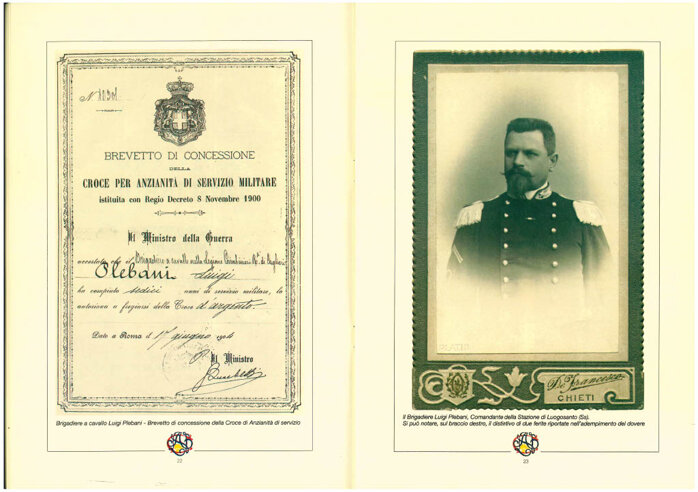 N. 10301
BREVETTO DI CONCESSIONE
DELLA
CROCE PER ANZIANITÀ DI SERVIZIO MILITARE
istituita con Regio Decreto 8 Novembre 1900
Il Ministro della Guerra
accertato che il Brigadiere a cavallo nella Legione Carabinieri R.li di Cagliari
Plebani Luigi
ha compiuto sedici anni di servizio militare, lo
autorizza a fregiarsi della Croce d'argento.
Dato a Roma il 17 giugno 1904
Il Ministro
Brigadiere a cavallo Luigi Plebani - Brevetto di concessione della Croce di Anzianità di servizio
22
PLATINO
De Francesco
CHIETI
Il Brigadiere Luigi Plebani, Comandante della Stazione di Luogosanto (Ss).
Si può notare, sul braccio destro, il distintivo di due ferite riportate nell'adempimento del dovere
23